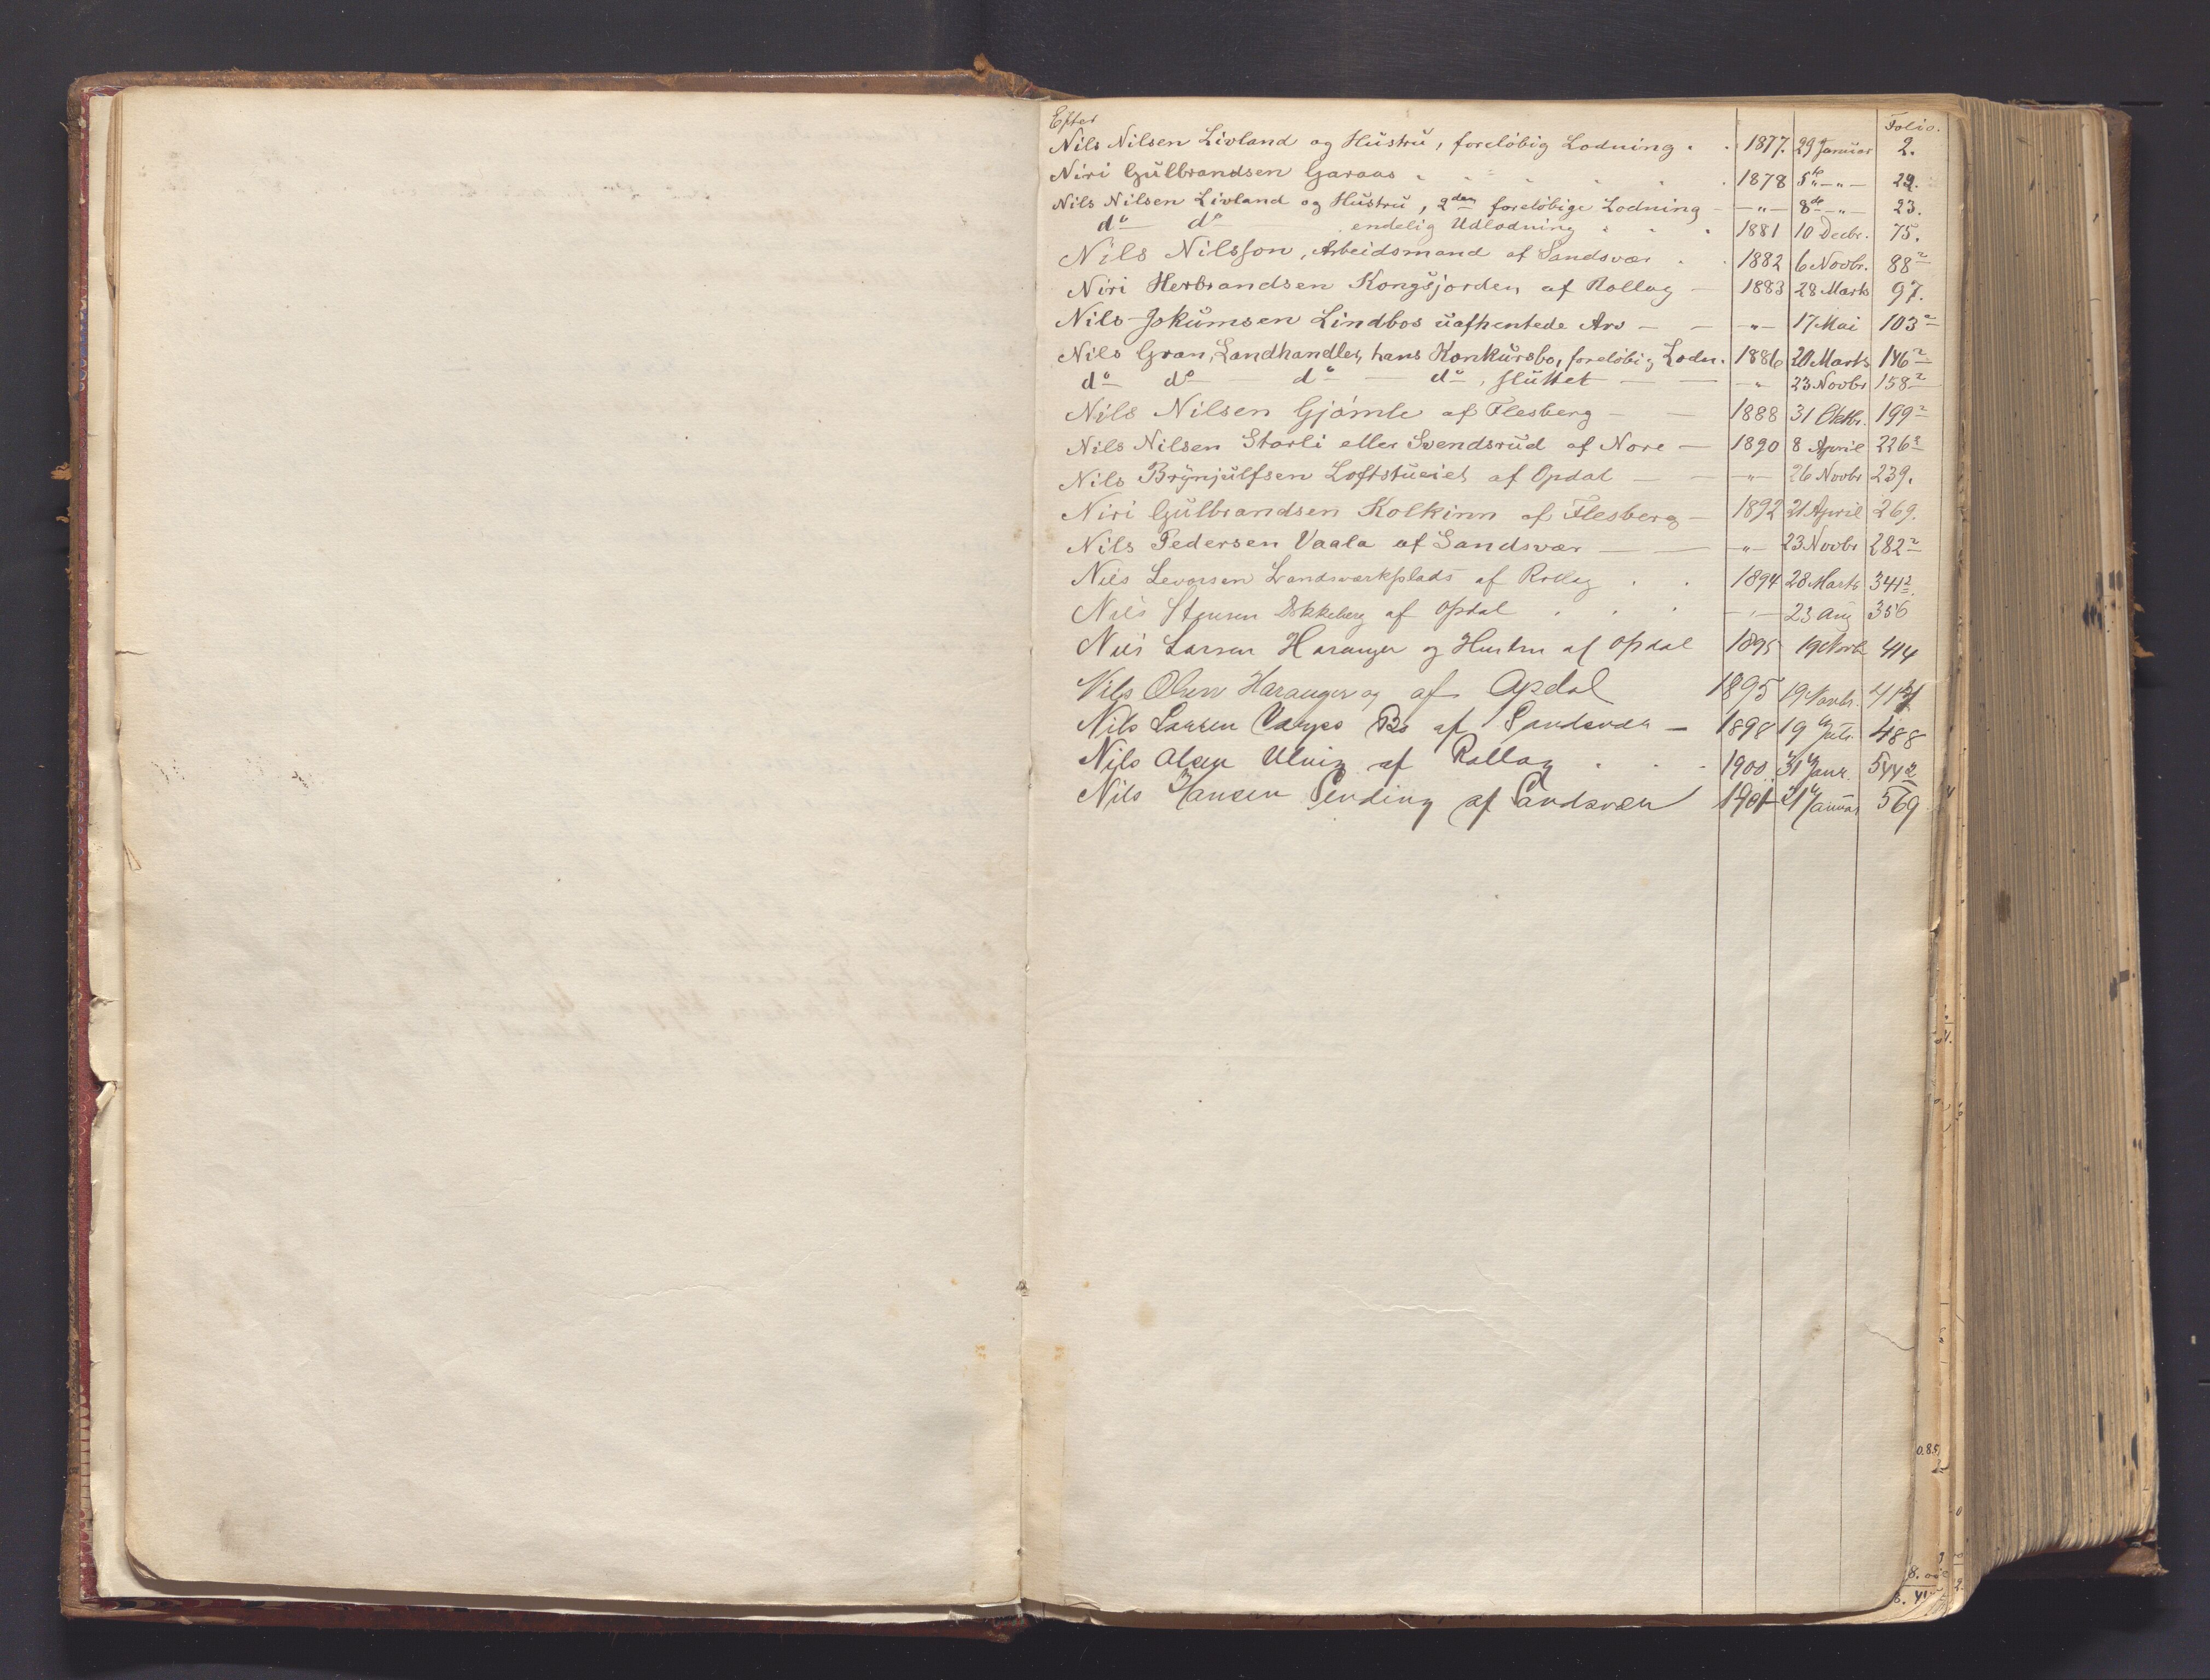 Efter Folio.
Nils Nilsen Livland og Hustru, foreløbig Lodning . . 1877. 29 Januar 2.
Niri Gulbrandsen Garaas 1878 5te —"— 22.
Nils Nilsen Livland og Hustru, 2den foreløbige Lodning —"— 8de —"— 23.
do do endelig Udlodning 1881 10 Decbr. 75.
Nils Nilsson, Arbeidsmand af Sandsvær . . 1882 6 Novbr. 88 2
Niri Herbrandsen Kongsjorden af Rollag — 1883 28 Marts 97.
Nils Jokumsen Lindbos uafhentede Arv — — —"— 17 Mai 103 2
Nils Gran, Landhandler, hans Konkursbo, foreløbig Lodn. 1886 20 Marts 146 2
do do — do — do, sluttet — — —"— 23 Novbr 158 2
Nils Nilsen Gjømle af Flesberg — — 1888 31 Oktbr. 199 2
Nils Nilsen Starli eller Svendsrud af Nore — 1890 8 April 226 2
Nils Brynjulfsen Loftstueiet af Opdal — — —"— 26 Novbr 239.
Niri Gulbrandsen Kolkinn af Flesberg — 1892 21 April 269.
Nils Pedersen Vaala af Sandsvær — — —"— 23 Novbr 282 2
Nils Levorsen Landsværkplads af Rollag . . 1894 28 Marts 341 2
Nils Stensen af Opdal . . . —"— 23 Aug 356
Nils Larsen Haranger og Hustru af Opdal 1895 19 Novb 414
Nils Olsen Haranger og af Opdal 1895 19 Novbr. 414
Nils Larsen Bo af Sandsvær — 1898 19 488
Nils Olsen Ulvig af Rollag . . . 1900 31 Janr. 544 2
Nils Hansen af Sandsvær 1901 21 Januar 569